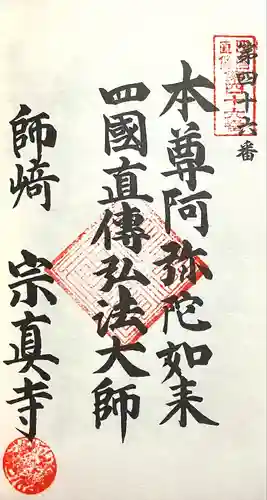 第四十六番
本尊阿弥陀如来
四國直傳弘法大師
師崎 宗真寺